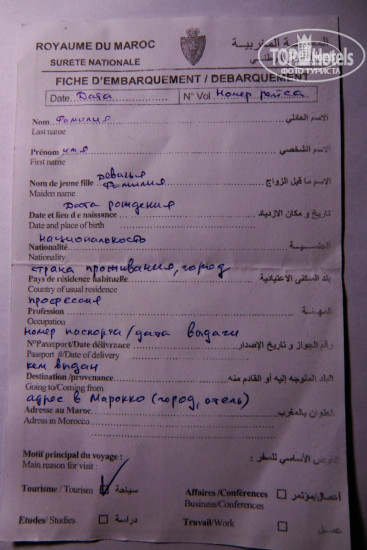 ROYAUME DU MAROC
SURETE NATIONALE
TOPHotels
ФОТО ТУРИСТА
FICHE D'EMBARQUEMENT / DEBARQUEMENT
Date Дата N° Vol Номер рейса
Фамилия
Nom الاسم العائلي
Last name
имя
Prénom الاسم الشخصي
First name
Девичья
Фамилия
Nom de jeune fille الاسم ما قبل الزواج
Maiden name
Дата рождения
Date et lieu de naissance تاريخ و مكان الازدياد
Date and place of birth
национальность
Nationalité الجنسية
Nationality
страна проживания, город
Pays de résidence habituelle بلد السكنى الاعتيادية
Country of usual residence
профессия
Profession المهنة
Occupation
номер паспорта / дата выдачи
N°Passport/Date délivrance رقم الجواز و تاريخ الإصدار
Passport /Date of delivery
кем выдан
Destination /provenance البلد المتوجه إليه أو القادم منه
Going to/Coming from
адрес в Марокко (город, отель)
Adresse au Maroc العنوان بالمغرب
Adress in Morocco
Motif principal du voyage : الغرض الأساسي للسفر :
Main reason for visit :
Tourisme / Tourism سياحة
Affaires /Conférences أعمال/مؤتمر
Business/Conferences
Etudes/ Studies دراسة
Travail/Work عمل